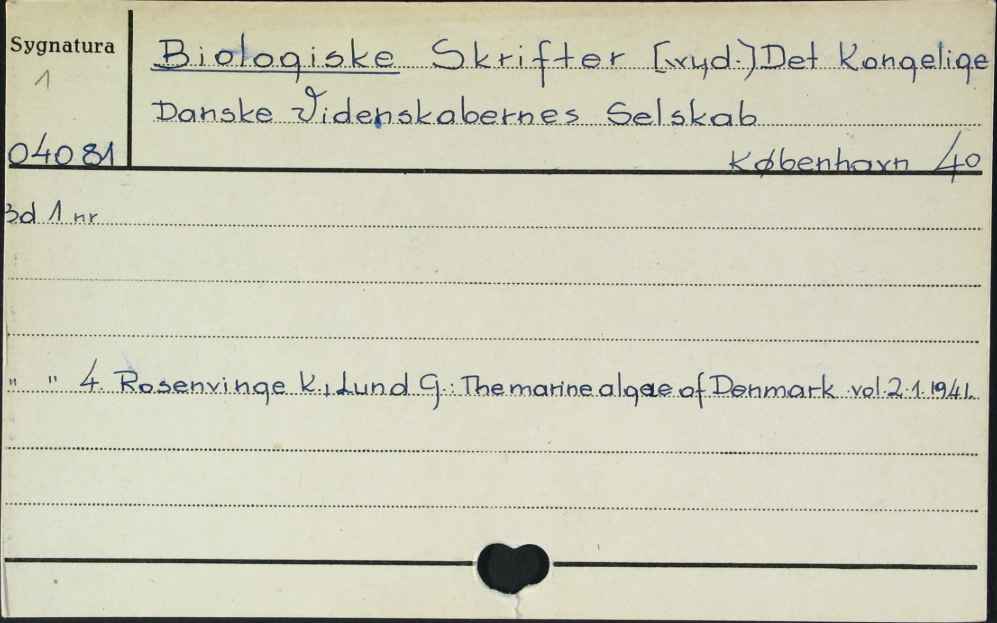 Sygnatura
1
04081
Biologiske Skrifter [wyd.) Det Kongelige
Danske Videnskabernes Selskab
København 40
Bd 1 nr
" " 4. Rosenvinge K., Lund G.: The marine algae of Denmark vol. 2.1. 1941.